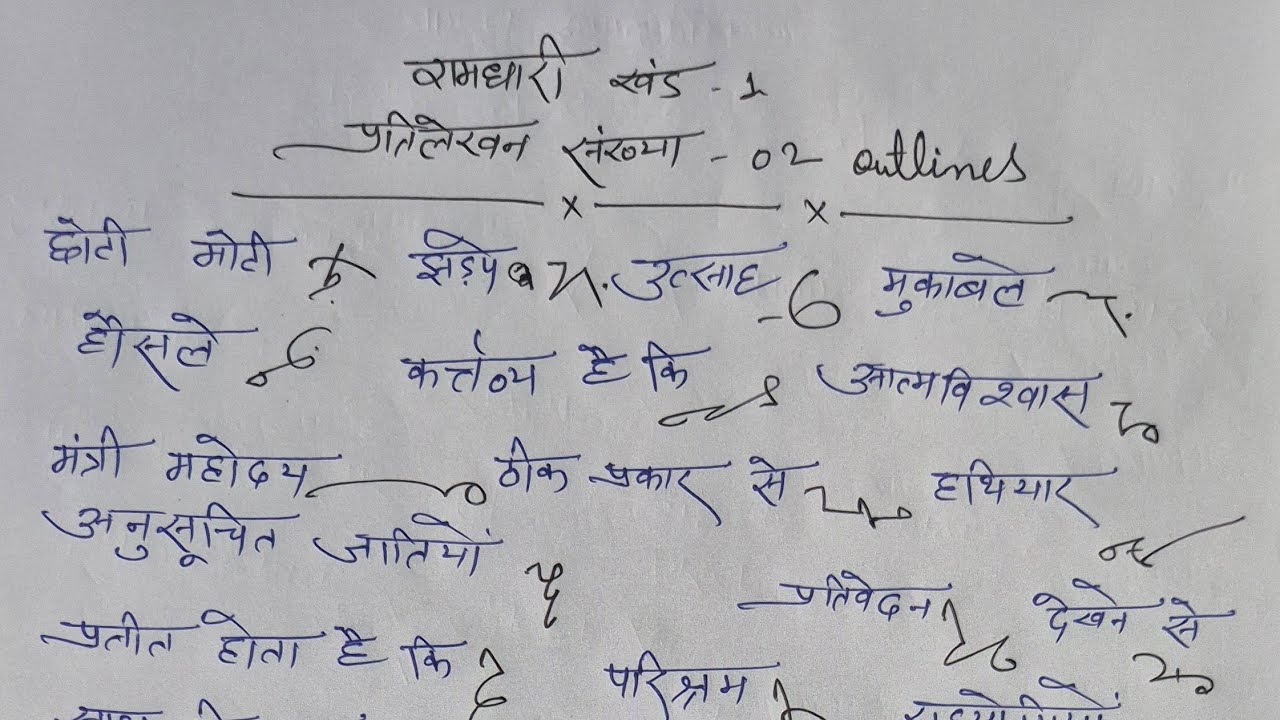 रामधारी खंड - 1
प्रतिलेखन संख्या - 02 outlines
छोटी मोटी झड़पे उत्साह मुकाबले
हौसले कर्त्तव्य है कि आत्मविश्वास
मंत्री महोदय ठीक प्रकार से हथियार
अनुसूचित जातियों
प्रतिवेदन देखने से
प्रतीत होता है कि परिश्रम